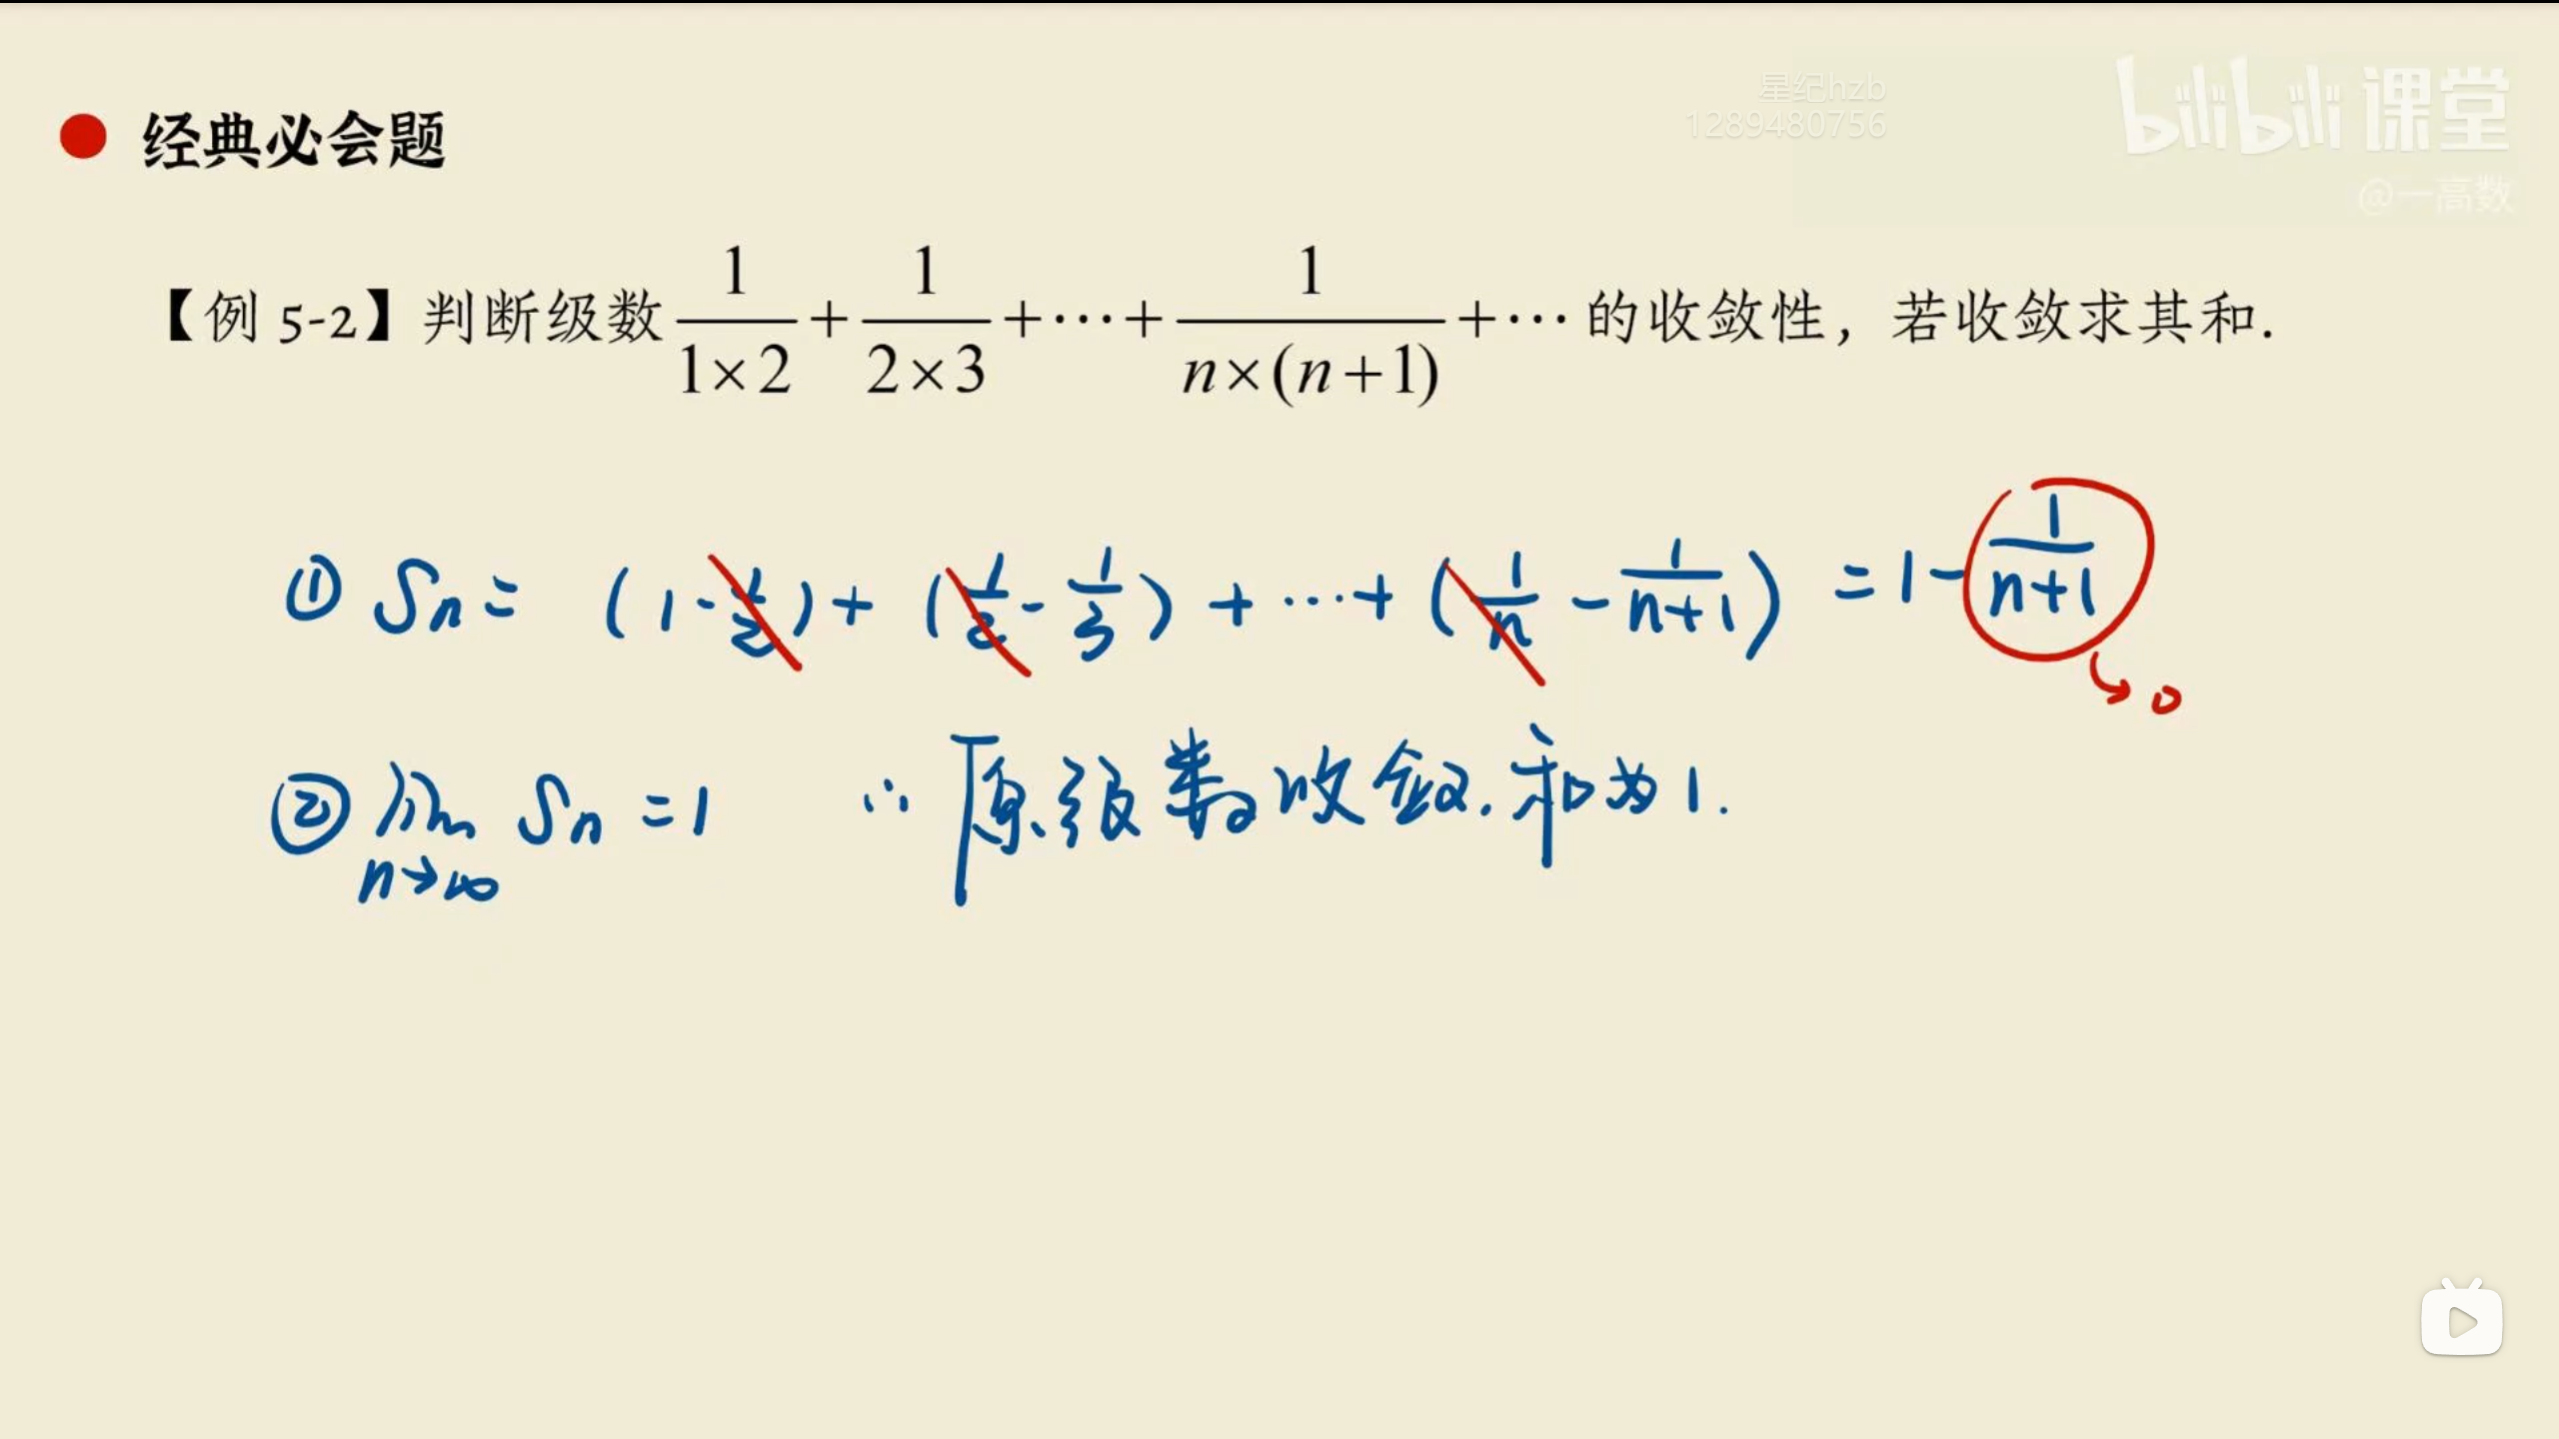 星纪hzb
1289480756
bilibili 课堂
@一高数
经典必会题
【例 5-2】判断级数 1/(1×2) + 1/(2×3) + ⋯ + 1/(n×(n+1)) + ⋯ 的收敛性，若收敛求其和.
① Sn = (1 - 1/2) + (1/2 - 1/3) + ⋯ + (1/n - 1/(n+1)) = 1 - 1/(n+1)
→ 0
② lim n→∞ Sn = 1 ∴ 原级数收敛. 和为 1.